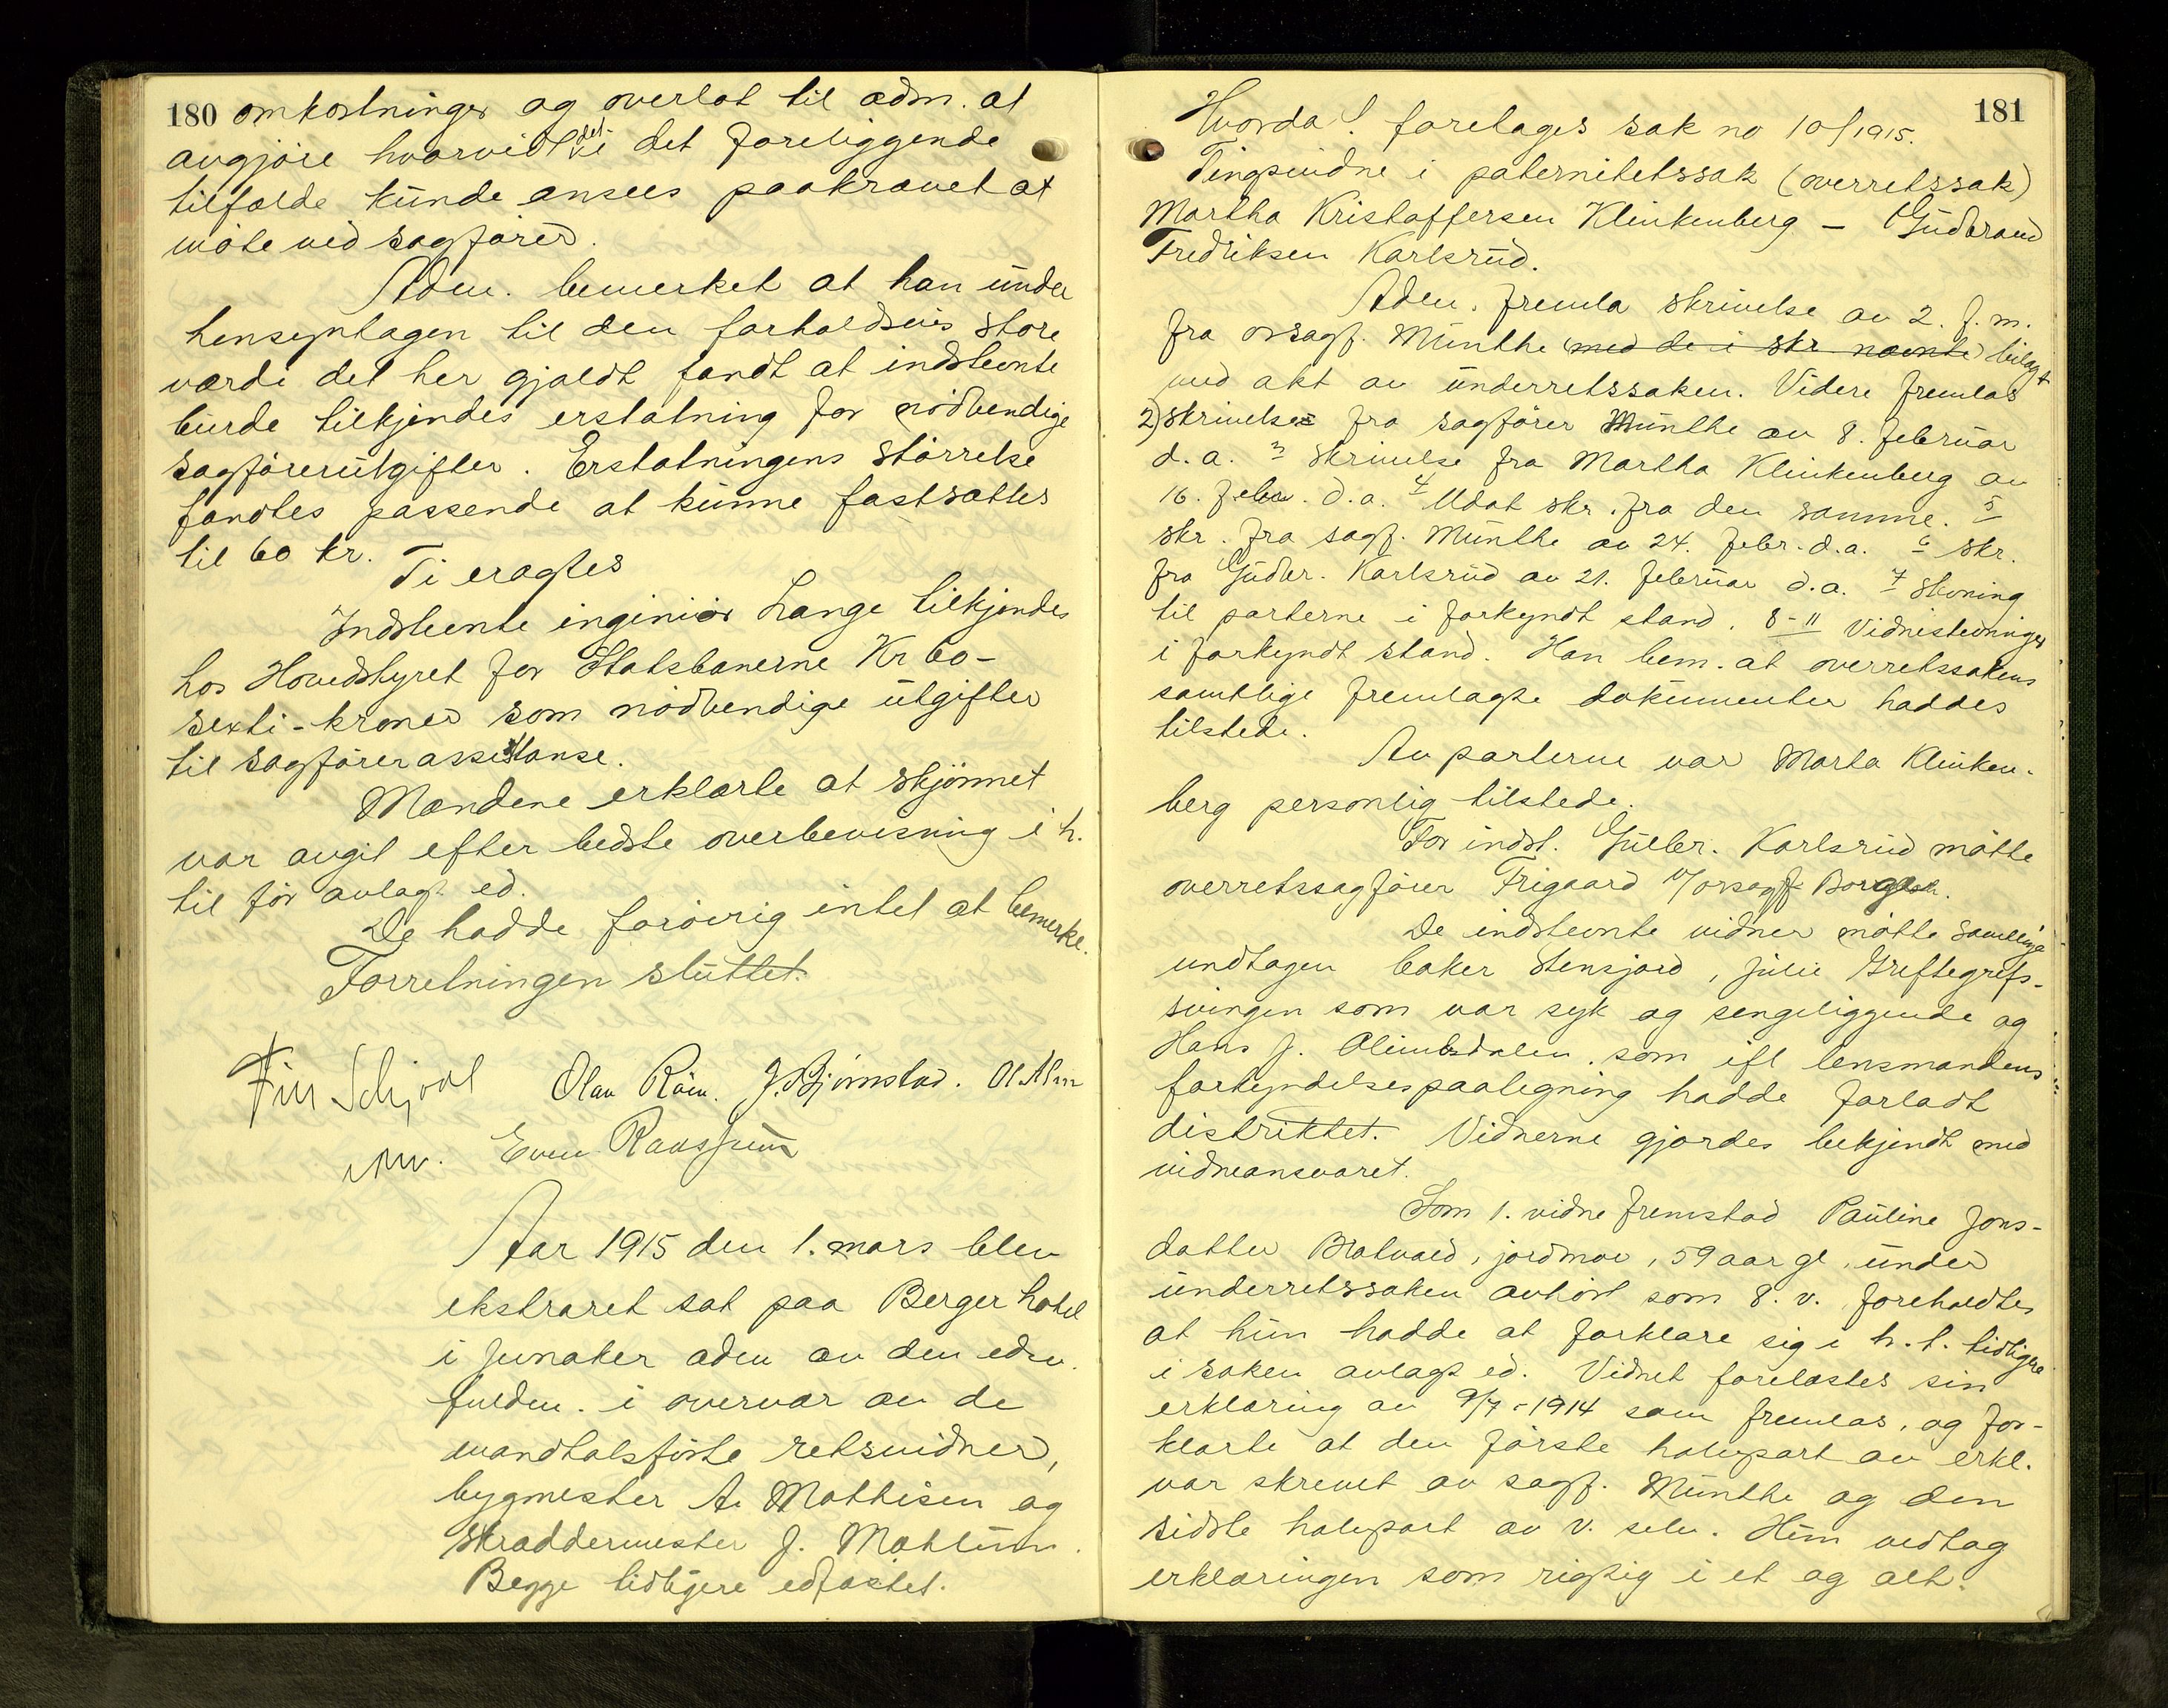 180 omkostninger og overlot til adm. at
avgjøre hvorvidt det i det foreliggende
tilfælde kunde ansees paakrævet at
møte ved sagfører.
Adm. bemerket at han under
hensyntagen til den forholdsvis store
værdi det her gjaldt fandt at indstevnte
burde tilkjendes erstatning for nødvendige
sagførerutgifter. Erstatningens størrelse
fandtes passende at kunne fastsættes
til 60 kr.
Ti eragtes
Indstevnte ingeniør Lange tilkjendes
hos Hovedstyret for Statsbanerne Kr 60-
sexti-kroner som nødvendige utgifter
til sagførerassistanse.
Mændene erklærte at skjønnet
var avgit efter bedste overbevisning i h.
til før avlagt ed.
De hadde forøvrig intet at bemerke.
Forretningen sluttet.
Olav Røin. J. Bjørnstad. Ol Alm
Even
Aar 1915 den 1. mars blev
ekstraret sat paa Berger hotel
i Jevnaker adm av den edsv.
fuldm. i overvær av de
mandtalsførte retsvidner,
bygmester A. Mathisen og
skræddermester J. Mæhlum.
Begge tidligere edfæstet.
181
Hvorda! foretages sak no 10/1915.
Tingsvidne i paternitetssak (overretssak)
Martha Kristoffersen Klinkenberg - Gudbrand
Fredriksen Karlsrud.
Adm. fremla skrivelse av 2. f. m.
fra orsagf. Munthe (med de i skr. nævnte) bilagt
med akt av underretssaken. Videre fremlas
2) skrivelse fra sagfører Munthe av 8. februar
d.a. 3 skrivelse fra Martha Klinkenberg av
16. febr. d.a. 4 Udat skr. fra den samme. 5
skr. fra sagf. Munthe av 24. febr. d.a. 6 skr.
fra Gudbr. Karlsrud av 21. februar d.a. 7 stevning
til parterne i forkyndt stand. 8-11 Vidnestevninger
i forkyndt stand. Han bem. at overretssakens
samtlige fremlagte dokumenter haddes
tilstede.
Av parterne var Marta Klinken-
berg personlig tilstede.
For indst. Gulbr. Karlsrud møtte
overretssagfører Frigaard v/orsagf.
De indstevnte vidner møtte samtlige
undtagen baker Stensjord, Julie Greftegrefs-
svingen som var syk og sengeliggende og
Hans J. Olimbsdalen som ifl lensmandens
forkyndelsespaategning hadde forladt
distriktet. Vidnerne gjordes bekjendt med
vidneansvaret.
Som 1. vidne fremstod Pauline Jons-
datter Bratvold, jordmor, 59 aar gl, under
underretssaken avhørt som 8. v. foreholdtes
at hun hadde at forklare sig i h. t. tidligere
i saken avlagt ed. Vidnet forelæstes sin
erklæring av 9/7-1914 som fremlas, og for-
klarte at den første halvpart av erkl.
var skrevet av sagf. Munthe og den
sidste halvpart av v. selv. Hun vedtog
erklæringen som rigtig i et og alt.